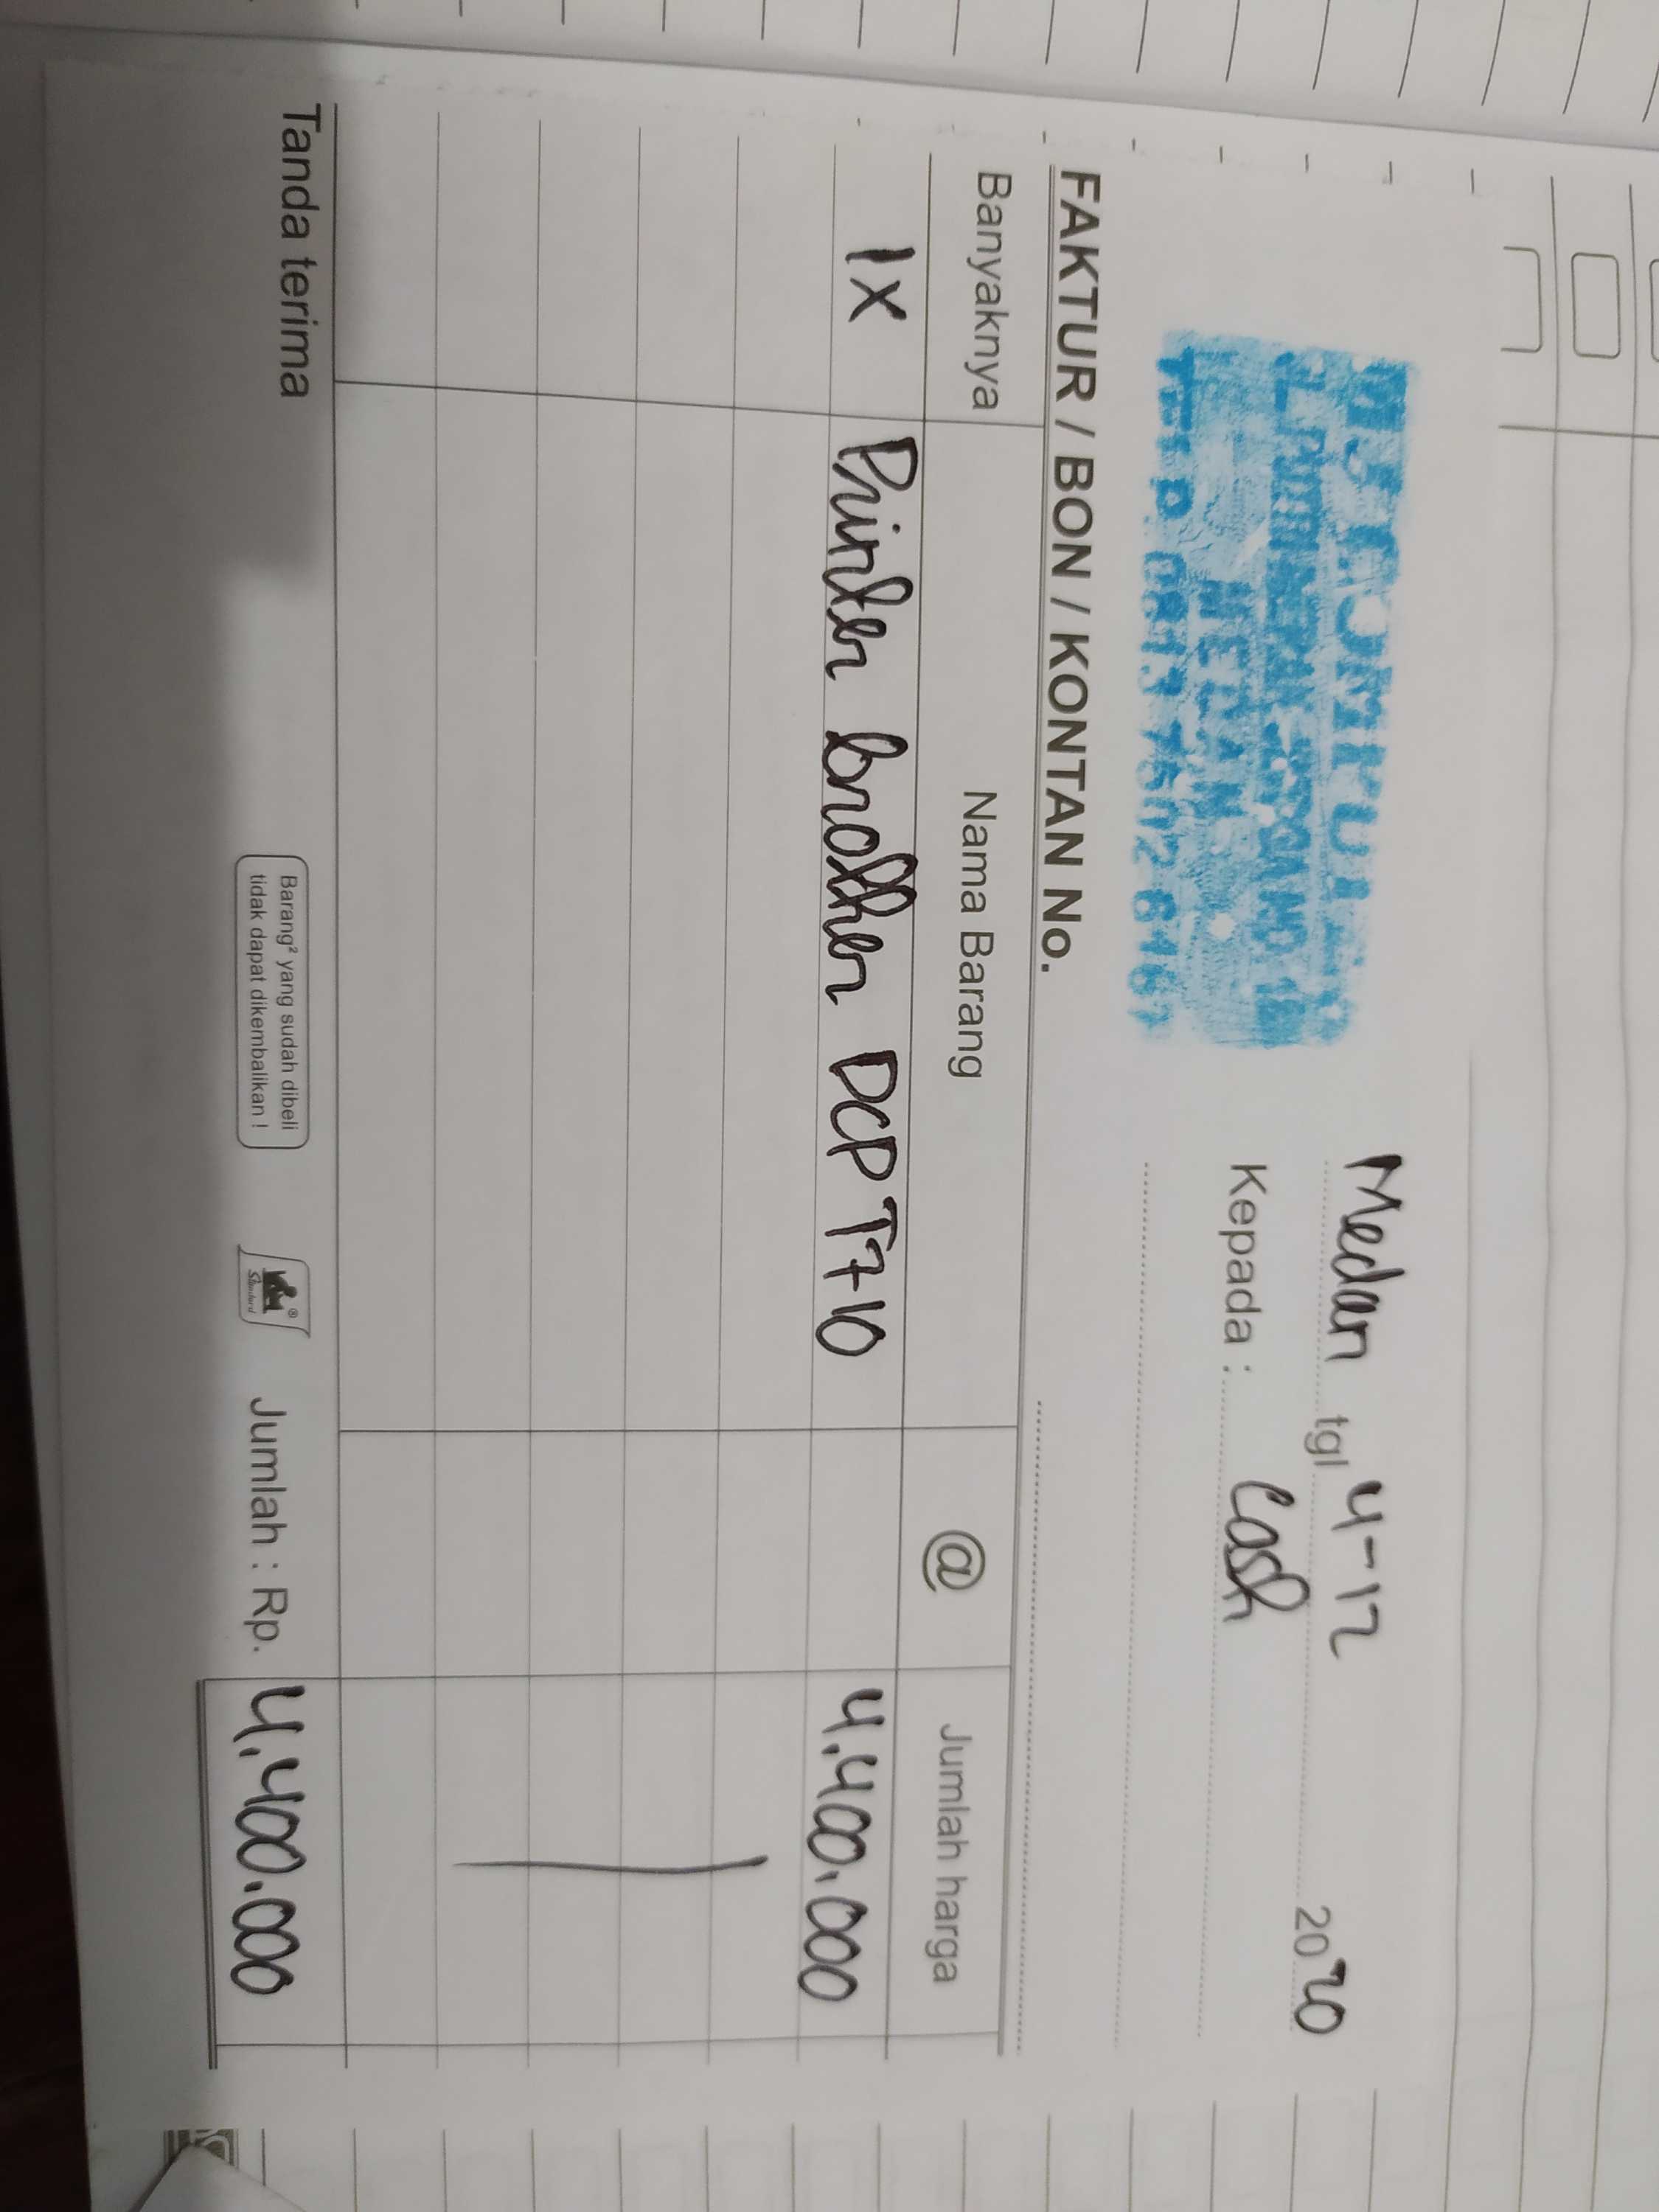 Medan tgl 4-12 2020
Kepada : Cash
MEDAN
TELP. 0813 7502 8467
FAKTUR / BON / KONTAN No.
Banyaknya Nama Barang @ Jumlah harga
1x Printer brother DCP T710 4.400.000
Tanda terima
Barang² yang sudah dibeli
tidak dapat dikembalikan !
Standard
Jumlah : Rp. 4.400.000